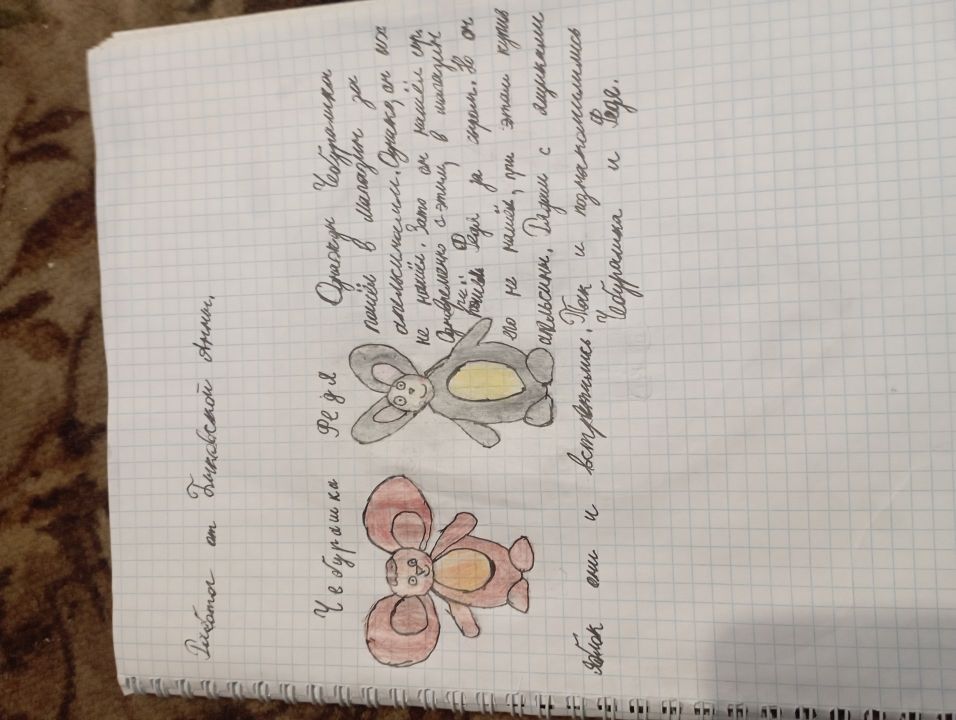 Работа от Быковской Анны.
Чебурашка
Федя
Однажды Чебурашка
пошёл в магазин за
апельсинами. Однако, он их
не нашёл. Зато он нашёл
Одновременно с этим, в магазин
Федя за сыром. Но он
его не нашёл, при этом купив
апельсины. Рядом с ящиками
яблок они и встретились. Так и познакомились
Чебурашка и Федя.